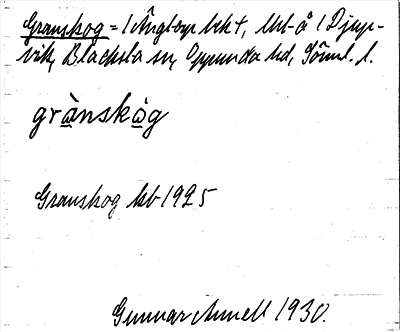 Granskog = 1 Ängstorp bkt, lht å 1 Djup-
vik, Blacksta sn, Oppunda hd, Söml. l.
grànskòg
Granskog kb 1925
Gunnar Arnell 1930.